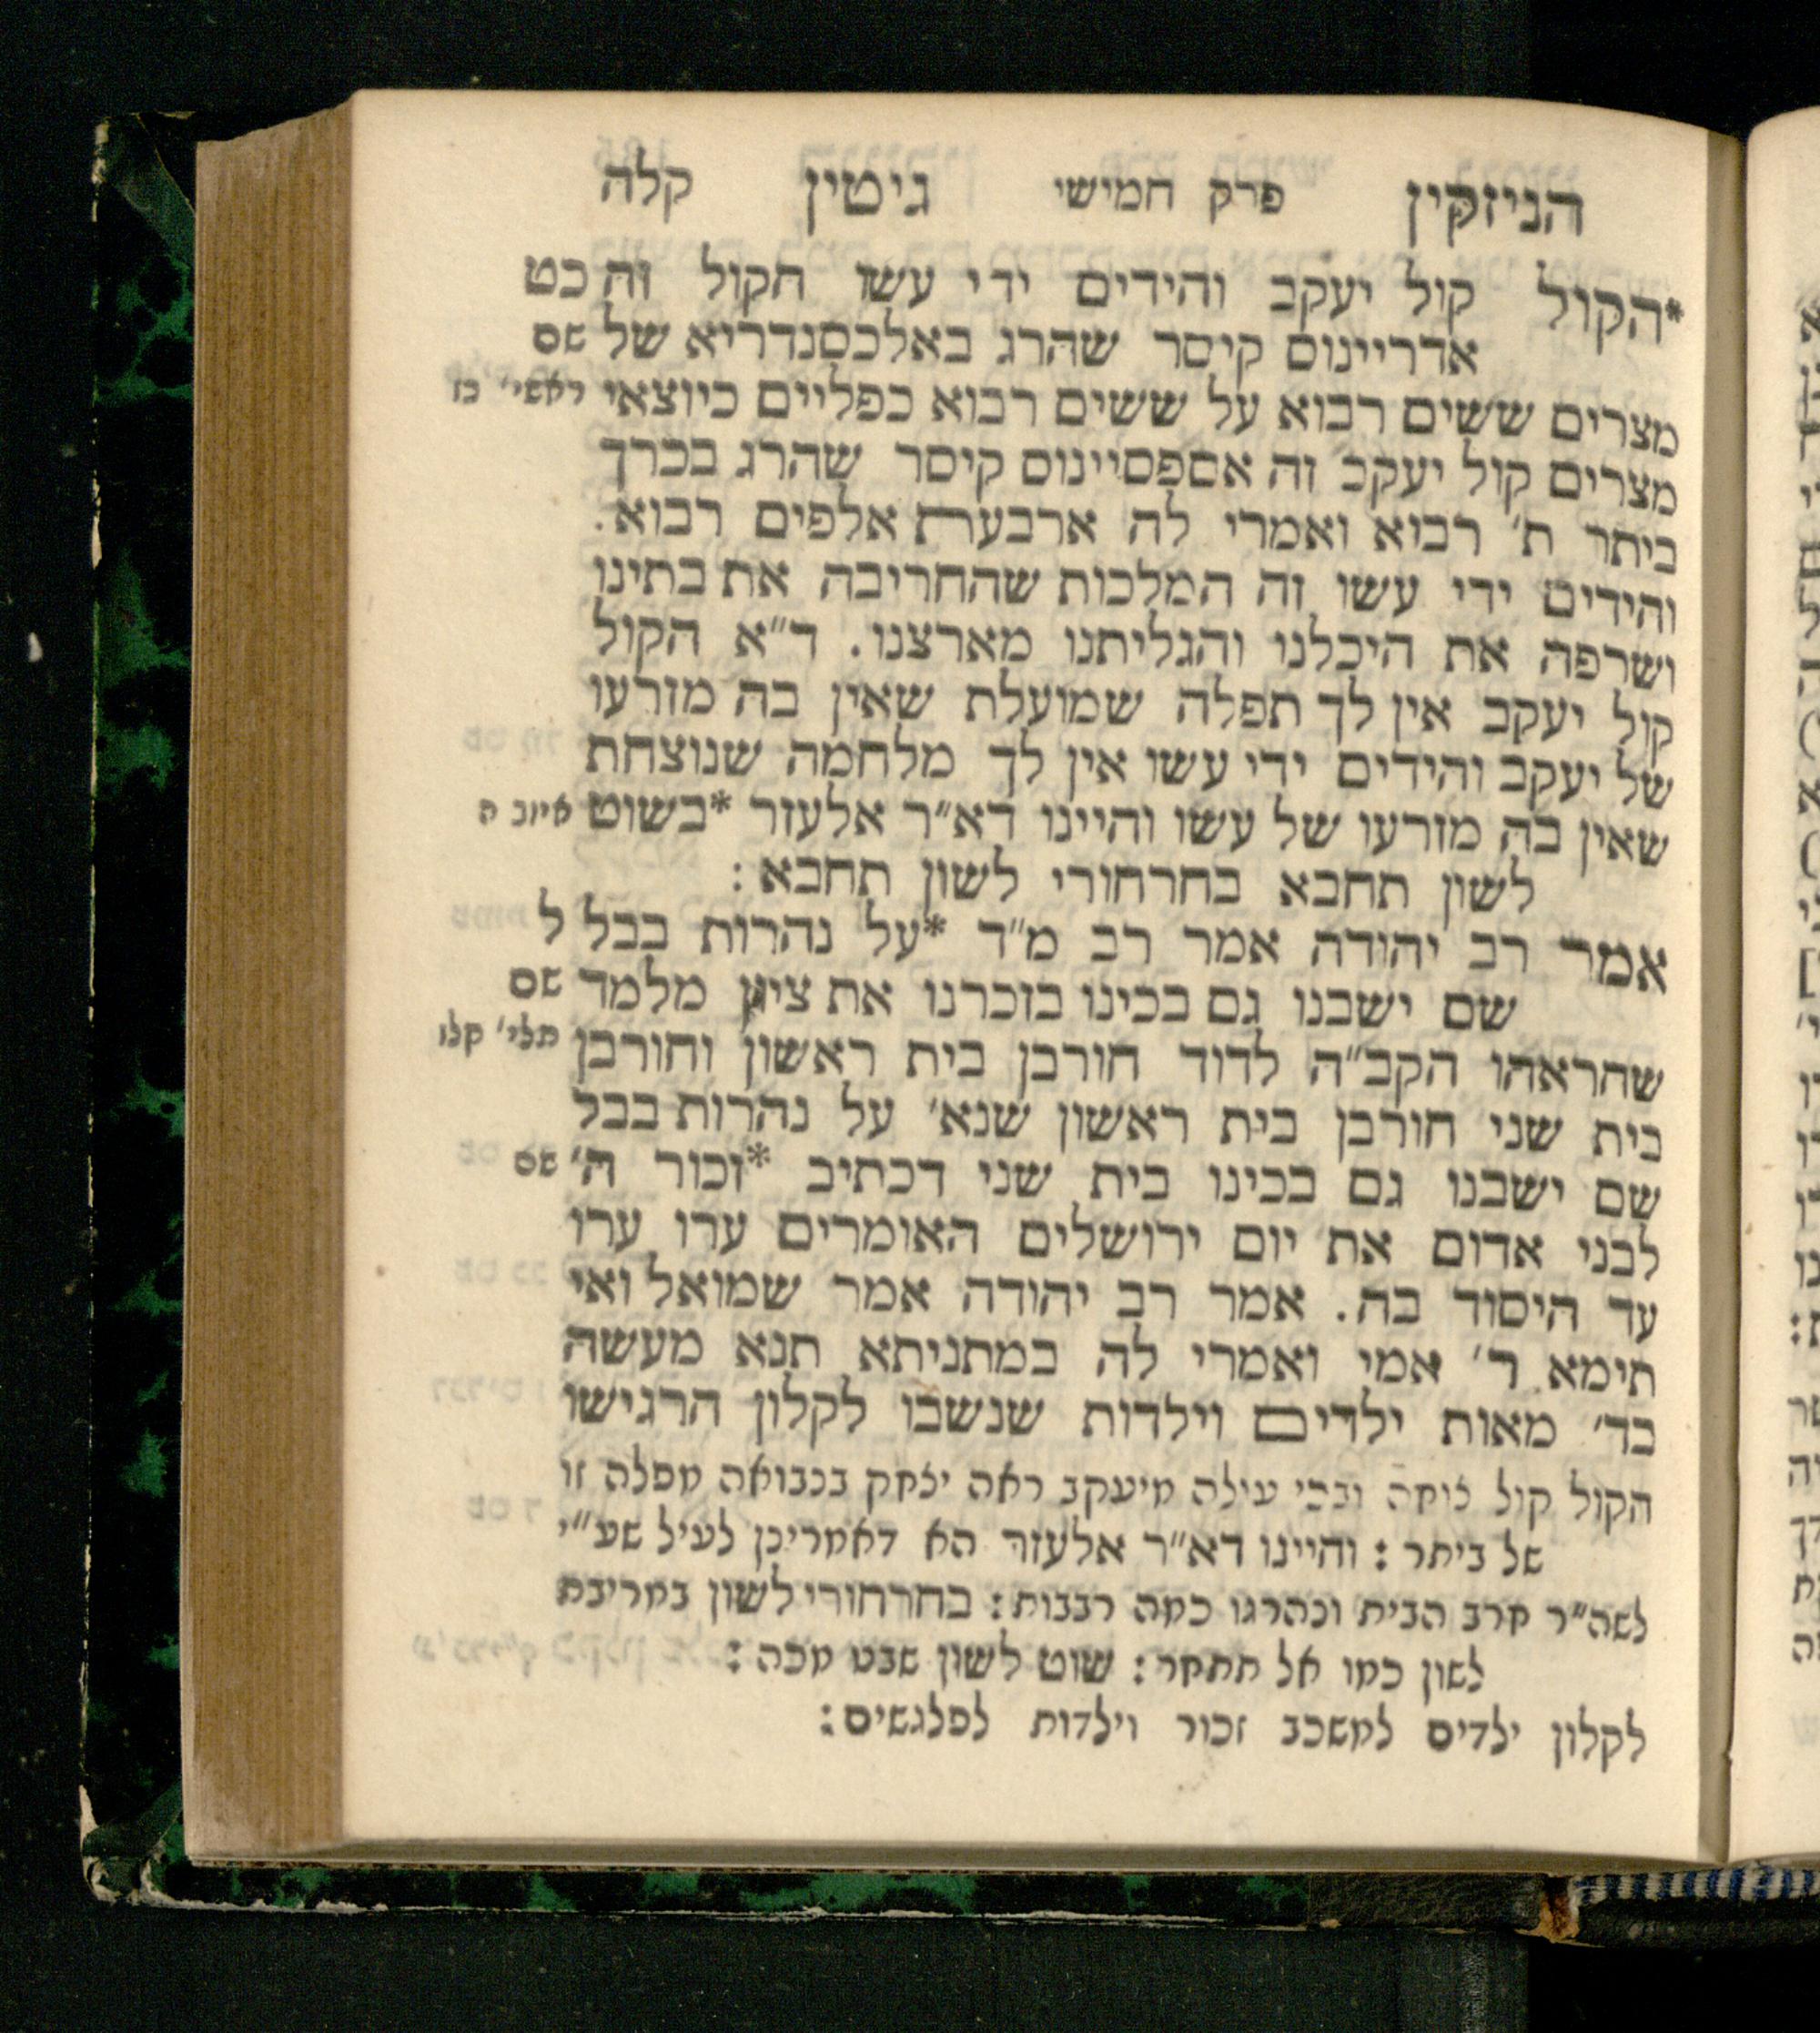 הניזקין פרק חמישי גיטין קלה
*הקול קול יעקב והידים ידי עשו הקול זה כט
אדריינוס קיסר שהרג באלכסנדריא של שם
מצרים ששים רבוא על ששים רבוא כפליים כיוצאי ראשי׳ כז
מצרים קול יעקב זה אספסיינוס קיסר שהרג בכרך
ביתר ת׳ רבוא ואמרי לה ארבערת אלפים רבוא.
והידים ידי עשו זה המלכות שהחריבה את בתינו
ושרפה את היכלנו והגליתנו מארצנו. ד״א הקול
קול יעקב אין לך תפלה שמועלת שאין בה מזרעו
של יעקב והידים ידי עשו אין לך מלחמה שנוצחת
שאין בה מזרעו של עשו והיינו דא״ר אלעזר *בשוט איוב ה
לשון תחבא בחרחורי לשון תחבא :
אמר רב יהודה אמר רב מ״ד *על נהרות בבל ל
שם ישבנו גם בכינו בזכרנו את ציון מלמד שם
שהראהו הקב״ה לדוד חורבן בית ראשון וחורבן תלי׳ קלז
בית שני חורבן בית ראשון שנא׳ על נהרות בבל
שם ישבנו גם בכינו בית שני דכתיב *זכור ה׳ שם
לבני אדום את יום ירושלים האומרים ערו ערו
עד היסוד בה. אמר רב יהודה אמר שמואל ואי
תימא ר׳ אמי ואמרי לה במתניתא תנא מעשה
בד׳ מאות ילדים וילדות שנשבו לקלון הרגישו
הקול קול נימה ובכי עילה מיעקב ראה יצחק בנבואה מפלה זו
של ביתר : והיינו דא״ר אלעזר הא דאמרינן לעיל שע״י
לשה״ר חרב הבית ונהרגו כמה רבבות : בחרחורי לשון במריבת
לשון כמו אל תתחר : שוט לשון שבט מכה :
לקלון ילדים למשכב זכור וילדות לפלגשים :